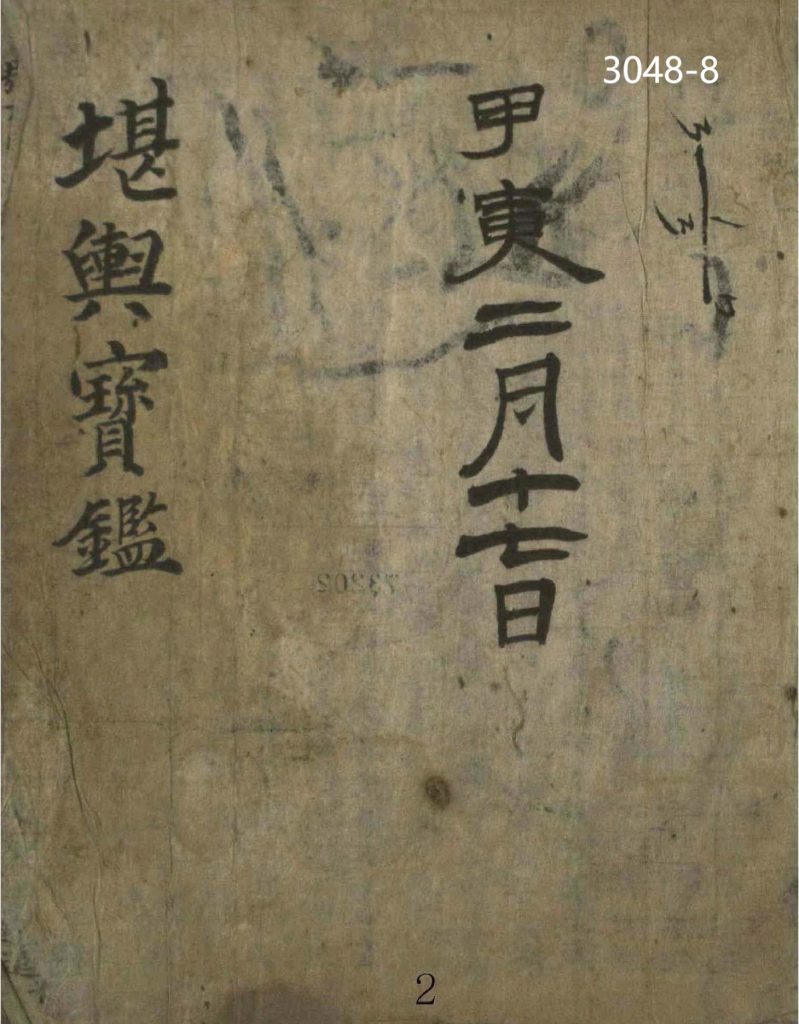 3048-8
甲寅二月十七日
堪輿寶鑑
2